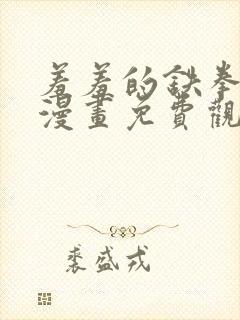 羞羞的鉄拳
漫畫免費觀
裘盛戎